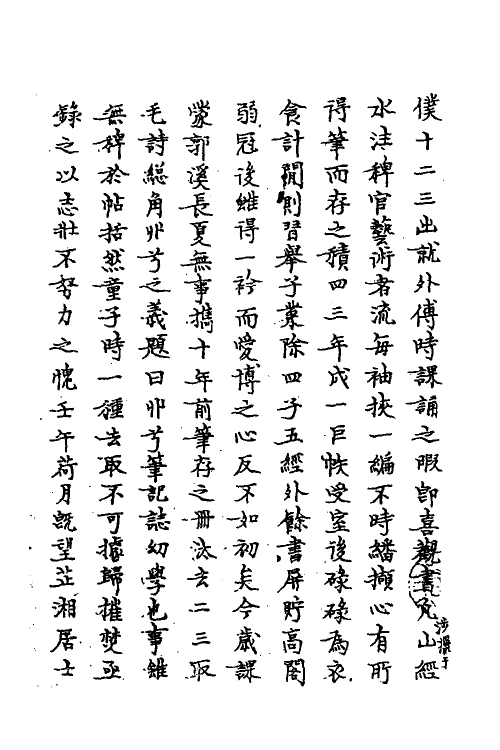 僕十二三出就外傅時課誦之暇卽喜觀書凡山經
涉獵于
水注稗官藝術者流每袖挾一編不時繙擷心有所
得筆而存之積四三年成一巨帙受室後碌碌為衣
食計閒則習舉子業除四子五經外餘書屏貯高閣
弱冠後雖得一衿而嗳博之心反不如初矣今歲課
蒙郭溪長夏無事擕十年前筆存之冊汰去二三取
毛詩総角丱兮之義題曰丱兮筆記誌幼學也事雖
無稗於帖括然童子時一種去取不可據歸摧焚亟
錄之以志壯不努力之愧壬午荷月旣望芷湘居士